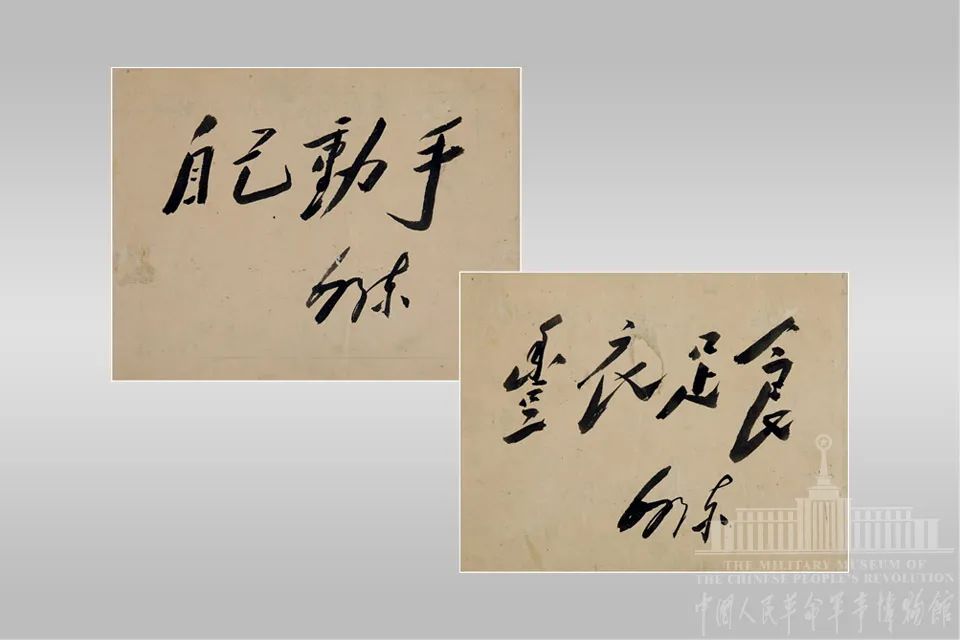 自己動手
泽东
豐衣足食
泽东
THE MILITARY MUSEUM OF
THE CHINESE PEOPLE'S REVOLUTION
中国人民革命军事博物館